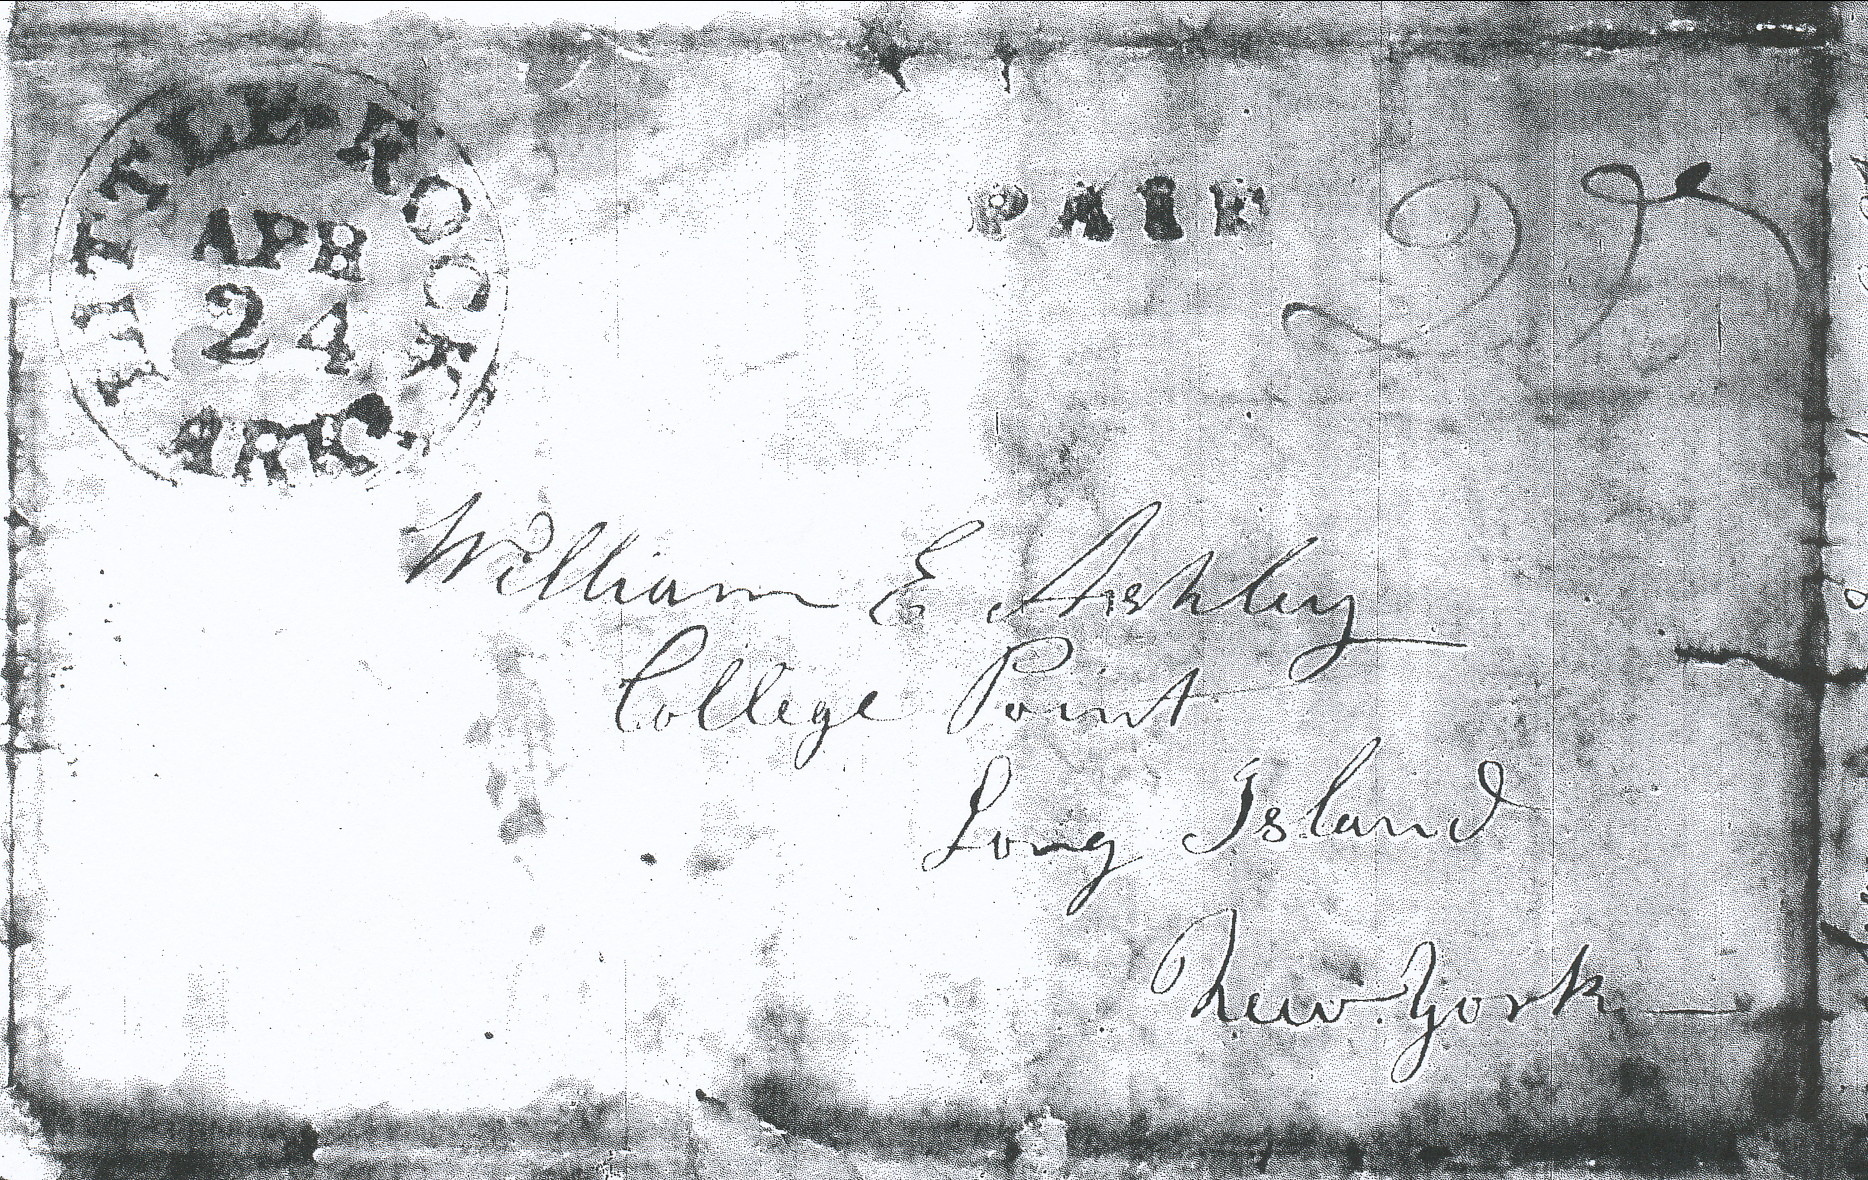 LITTLE ROCK
APR
24
PAID 25
William E Ashley
College Point
Long Island
New York